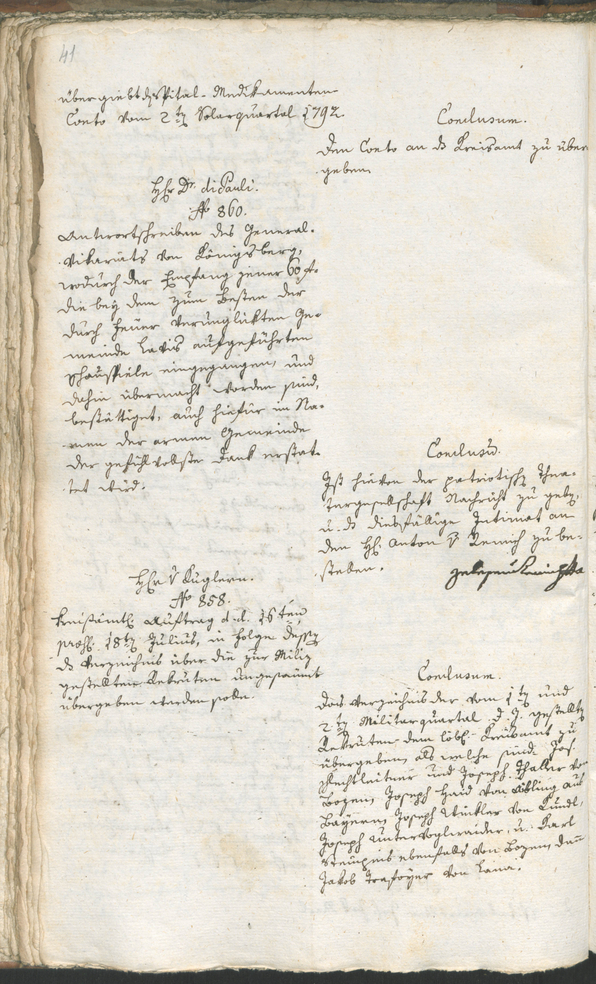 41
übergiebt des Spital-Medikamenten
Conto vom 2ten Solarquartal 1792.
Conclusum.
Den Conto an das Kreisamt zu über
geben.
Hhr Dr. di Pauli.
No 860.
Antwortschreiben des General-
Vikariats von Königsberg,
wodurch der Empfang jener 60 f.
die bey dem zum Besten der
durch Feuer verunglükten Ge-
meinde Lavis aufgeführten
Schauspiele eingegangen, und
dahin übermacht worden sind,
bestättiget, auch hiefür im Na-
men der armen Gemeinde
der gefühlvollste Dank erstat-
tet wird.
Conclusum.
Ist hievon der patriotisch Thea-
tergesellschaft Nachricht zu geben,
u. das diesfällige Intimat an
den Hh. Anton v Remich zu be-
stellen.
Hhr v Kuglern.
No 858.
Kreisämtl. Auftrag d.d. 16ten
praes. 18ten Julius, in Folge dessen
das Verzeichnis über die zur Miliz
gestellten Rekruten ungesaumt
übergeben werden solle.
Conclusum.
Das Verzeichnis der vom 1ten und
2ten Militarquartal d. J. gestellten
Rekruten dem löbl. Kreisamt zu
übergeben, als welche sind: Jos.
Knechtleitner und Joseph Thaller von
Bozen, Joseph Haid von Aibling aus
Bayern, Joseph Winkler von Kundl,
Joseph Untervoglwaider, u. Karl
ebenfalls von Bozen, dann
Jakob Trafoyer von Lana.